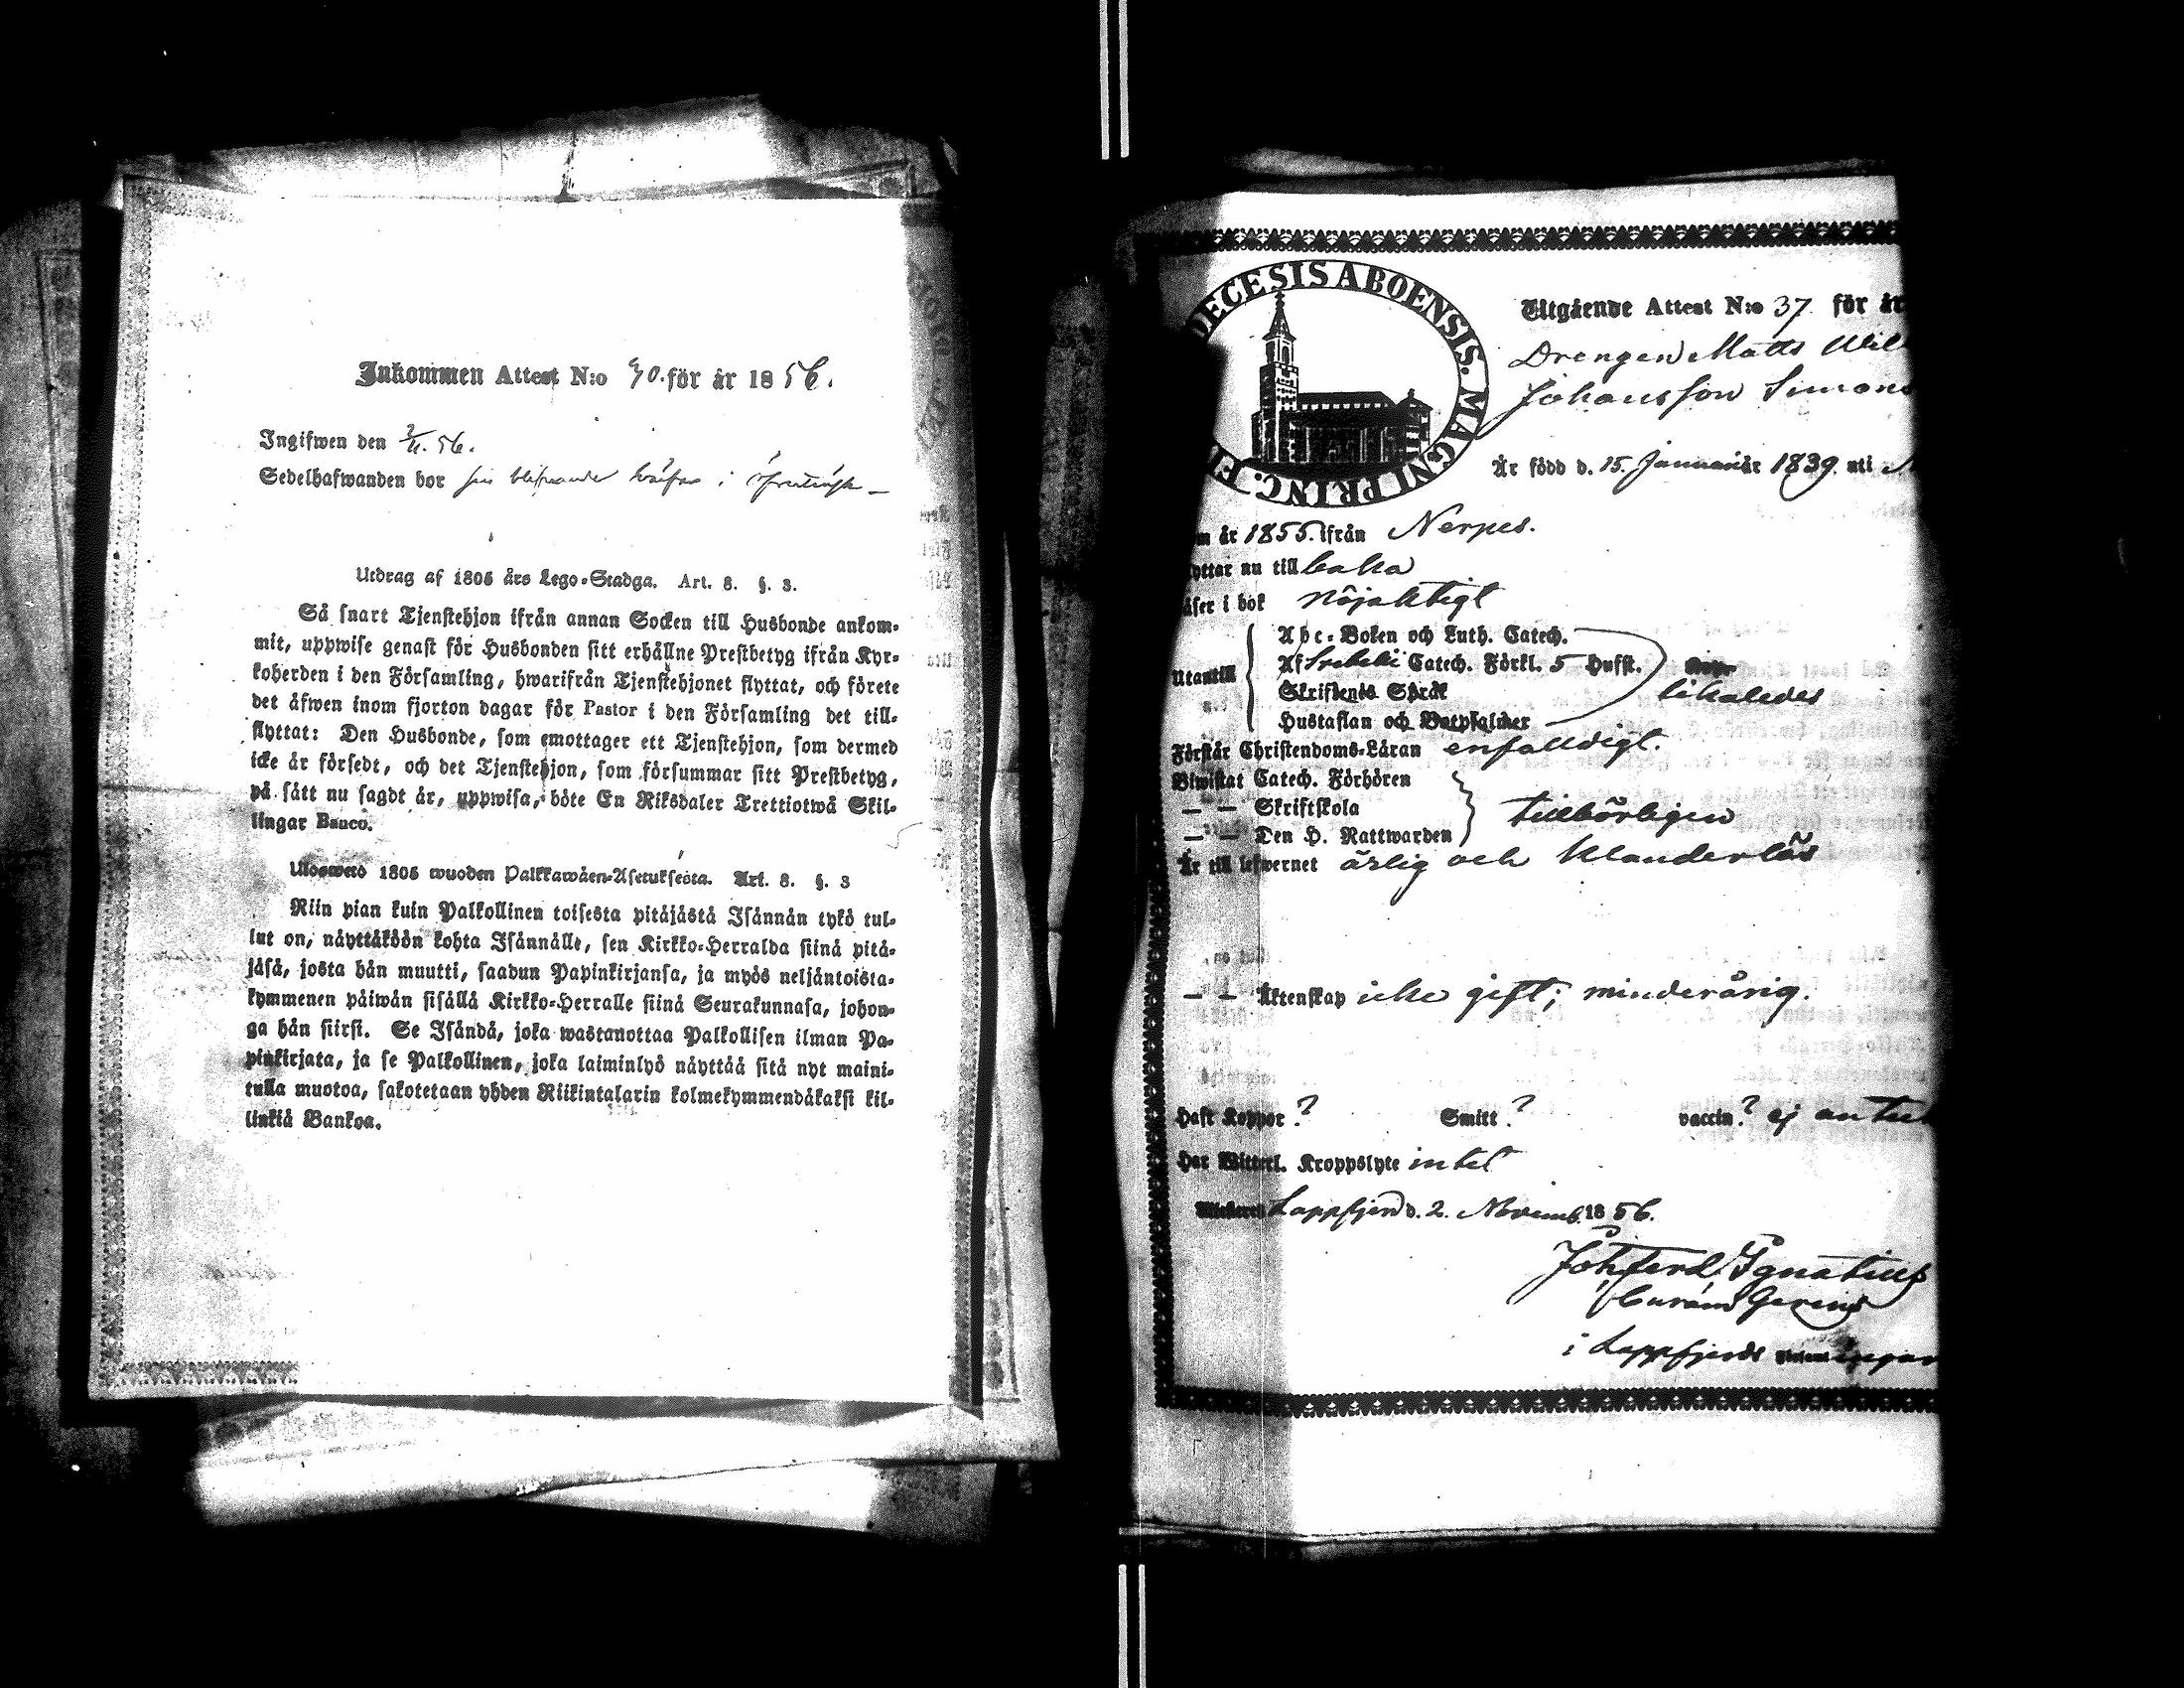 Inkommen Attest N:o 70. för år 1856.
Ingifwen den 2/11. 56.
Sedelhafwanden bor hos i
Utdrag af 1805 års Lego-Stadga. Art. 8. §. 3.
Så snart Tjenstehjon ifrån annan Socken till Husbonde ankom-
mit, uppwise genast för Husbonden sitt erhållne Prestbetyg ifrån Kyr-
koherden i den Församling, hwarifrån Tjenstehjonet flyttat, och förete
det äfwen inom fjorton dagar för Pastor i den Församling det till-
flyttat: Den Husbonde, som emottager ett Tjenstehjon, som dermed
icke är försedt, och det Tjenstehjon, som försummar sitt Prestbetyg,
på sätt nu sagdt är, uppwisa, böte En Riksdaler Trettiotwå Skil-
lingar Banco.
Uloswetö 1805 wuoden Palkkawäen-Asetuksesta. Art. 8. §. 3
Niin pian kuin Palkollinen toisesta pitäjästä Isännän tykö tul-
lut on, näyttäköön kohta Isännälle, sen Kirkko-Herralda siinä pitä-
jäsä, josta hän muutti, saadun Papinkirjansa, ja myös neljäntoista-
kymmenen päiwän sisällä Kirkko-Herralle siinä Seurakunnasa, johon-
ga hän siirsi. Se Isändä, joka wastanottaa Palkollisen ilman Pa-
pinkirjata, ja se Palkollinen, joka laiminlyö näyttää sitä nyt maini-
tulla muotoa, sakotetaan yhden Riikintalarin kolmekymmendäkaksi kil-
linkiä Bankoa.
DECESIS ABOENSIS. MAGNI PRINC. FI
Utgående Attest N:o 37 för år
Drengen Matts Wil
Johansson Simons
Är född d. 15. Januari år 1839. uti
m år 1855. ifrån Nerpes.
yttar nu tillbaka
äser i bok nöjaktigt
Utantill
Abc-Boken och Luth. Catech.
Af Svebelii Catech. Förkl. 5 Hufst.
Skriftenes Språk
Hustaflan och Botpsalmer
likaledes
Förstår Christendoms-Läran enfaldigt.
Biwistat Catech. Förhören
— — Skriftskola
— — Den H. Nattwarden
tillbörligen
Är till lefwernet ärlig och klanderlös
— — Äktenskap icke gift; minderårig.
Haft Koppor ? Smitt ? vaccin ? ej antec
Har Witterl. Kroppslyte intet
Attesteras Lappfjerd d. 2. Novemb. 1856.
Joh. Ferd. Ignatius
Curam Gerens
i Lappfjerds